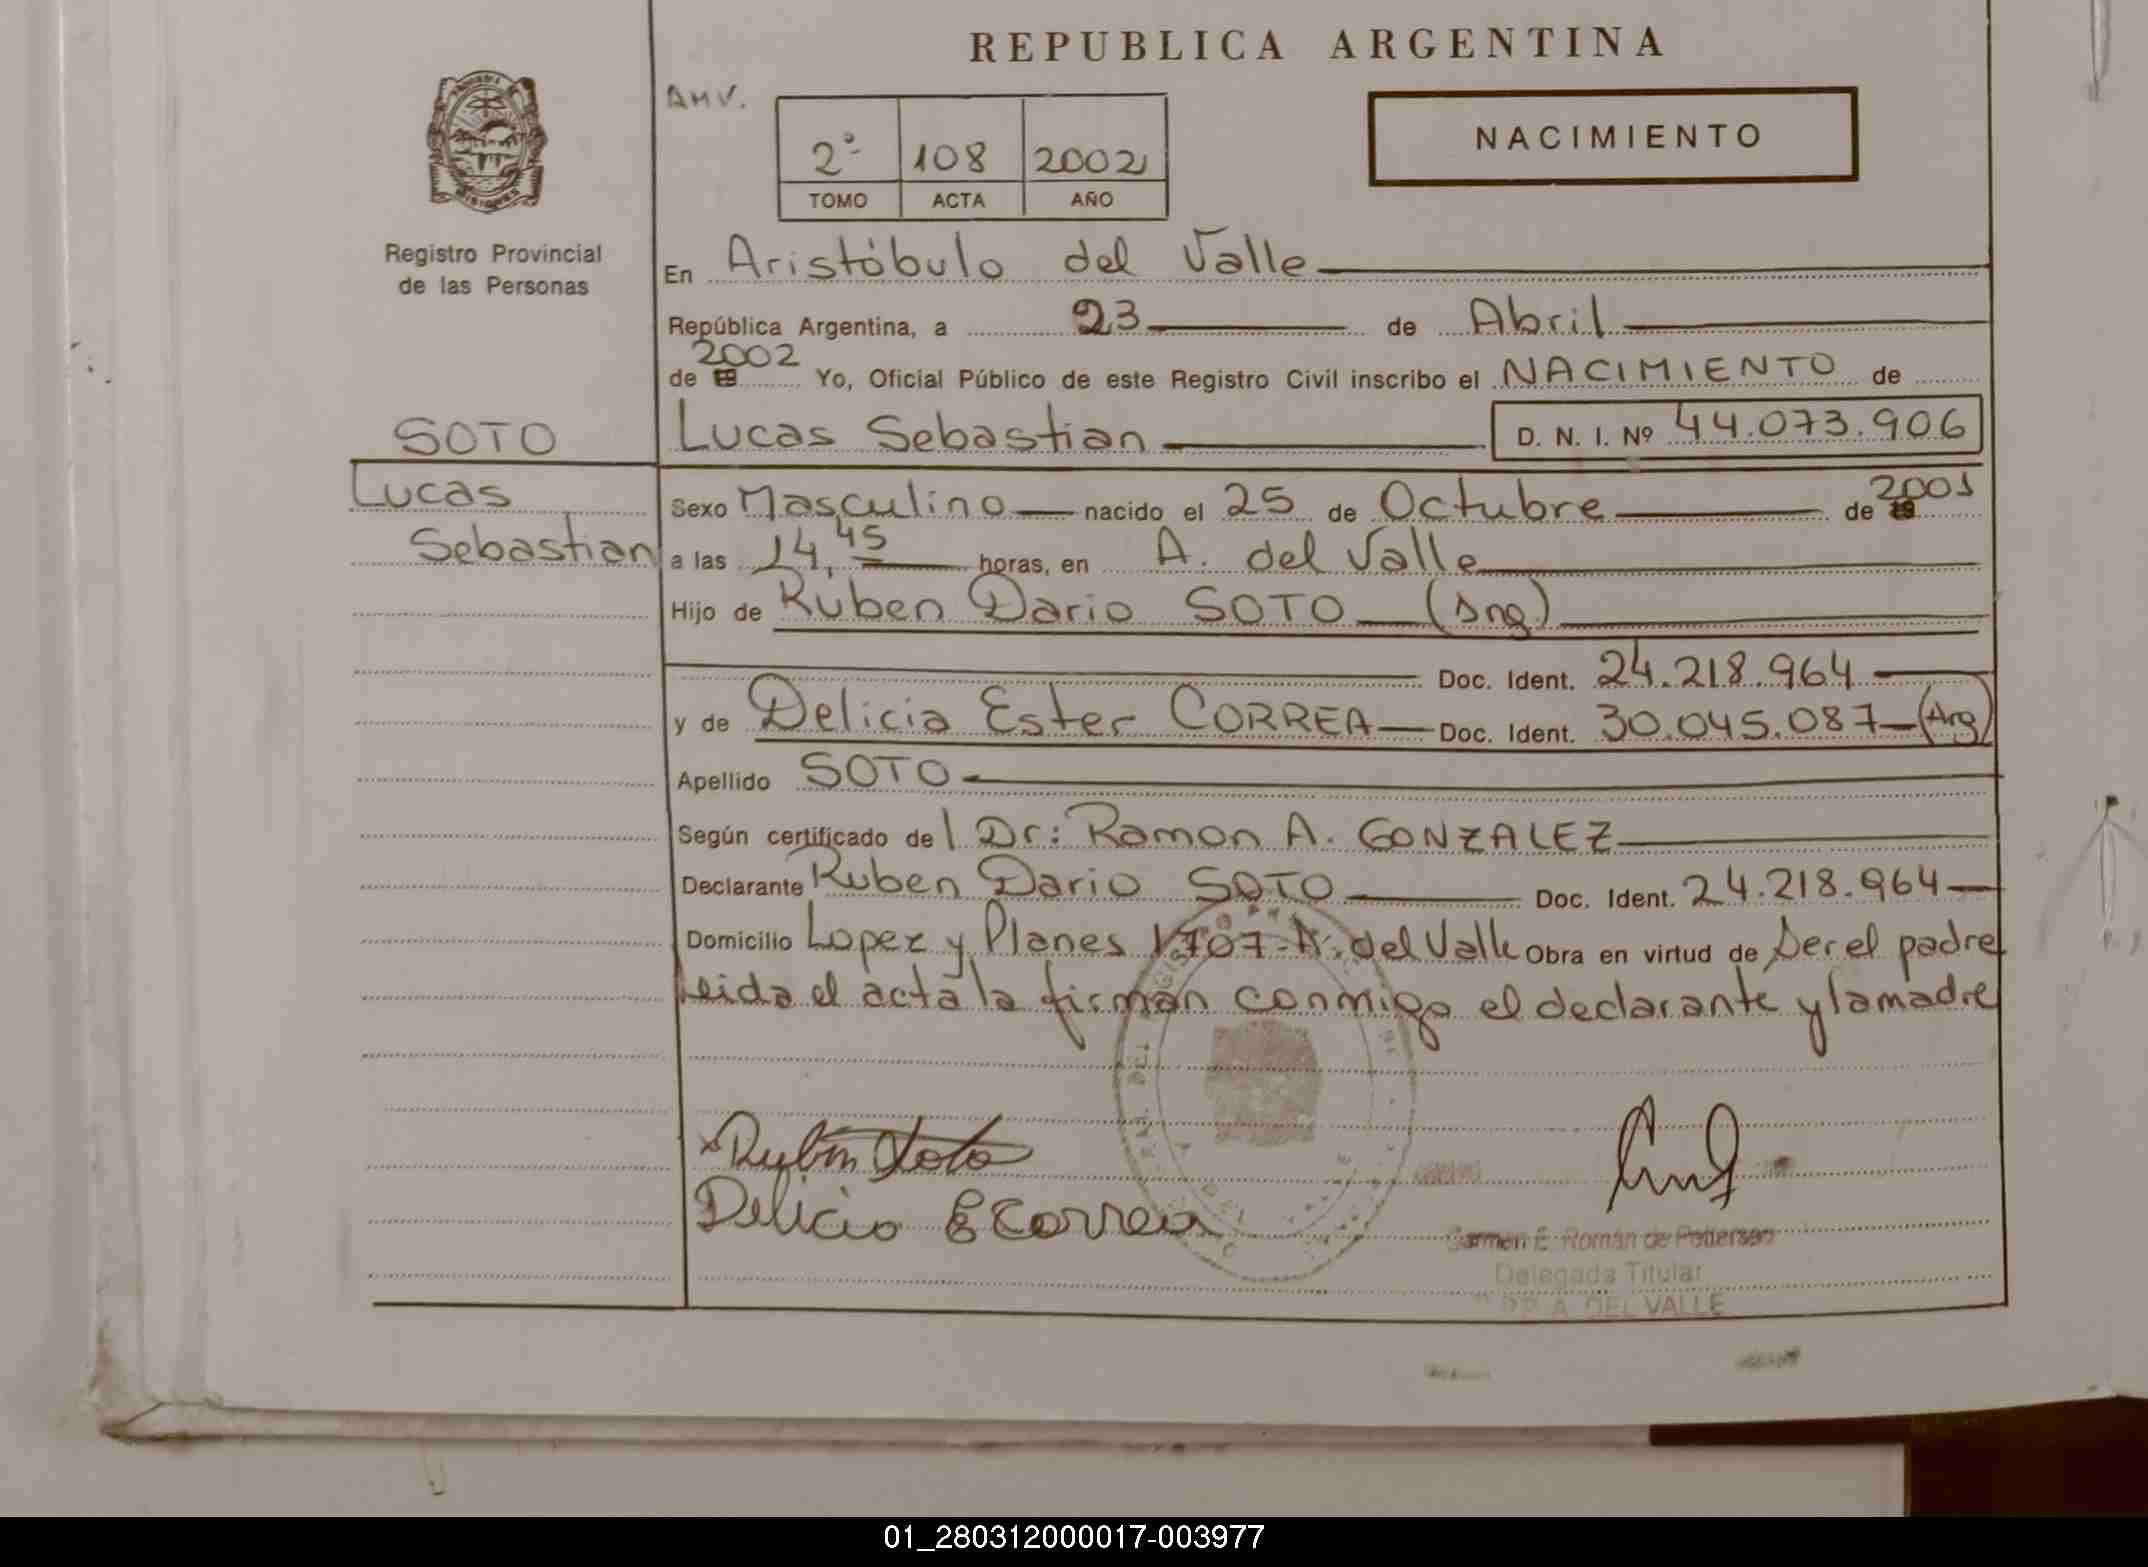 REPUBLICA ARGENTINA
AMV.
2º 108 2002
TOMO ACTA AÑO
NACIMIENTO
MISIONES
Registro Provincial
de las Personas
En Aristóbulo del Valle
República Argentina, a 23 de Abril
2002
de 19 Yo, Oficial Público de este Registro Civil inscribo el NACIMIENTO de
SOTO
Lucas Sebastian D. N. I. Nº 44.073.906
Lucas
Sebastian
Sexo Masculino nacido el 25 de Octubre de 19 2001
a las 14,45 horas, en A. del Valle
Hijo de Ruben Dario SOTO (Arg)
Doc. Ident. 24.218.964
y de Delicia Ester CORREA Doc. Ident. 30.045.087 (Arg)
Apellido SOTO
Según certificado de l Dr: Ramon A. GONZALEZ
Declarante Ruben Dario SOTO Doc. Ident. 24.218.964
Domicilio Lopez y Planes 1707-A. del Valle Obra en virtud de Ser el padre
Leida el acta la firman conmigo el declarante y la madre
Rubén Soto
Delicia E Correa
Carmen E. Román de
Delegada Titular
A. DEL VALLE
01_280312000017-003977